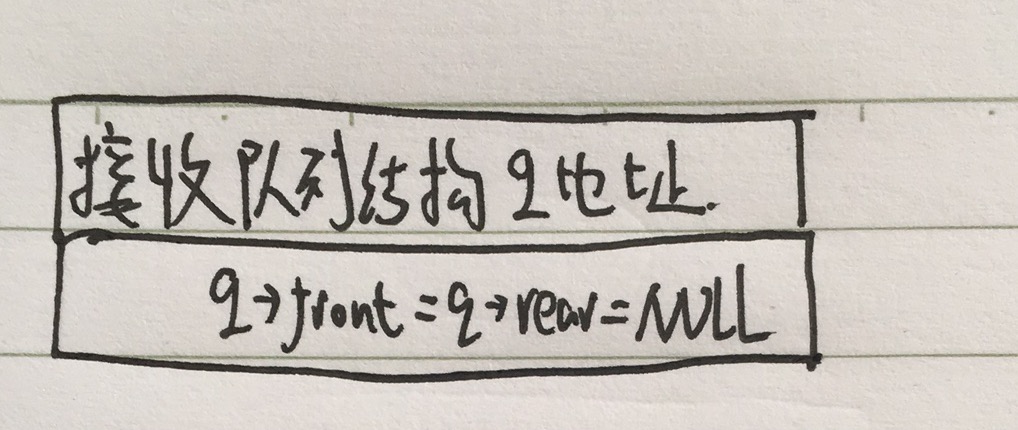 接收队列结构q地址.
q→front=q→rear=NULL